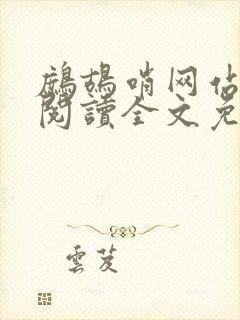 鷓鴣哨网估
閱讀全文免
雲芨